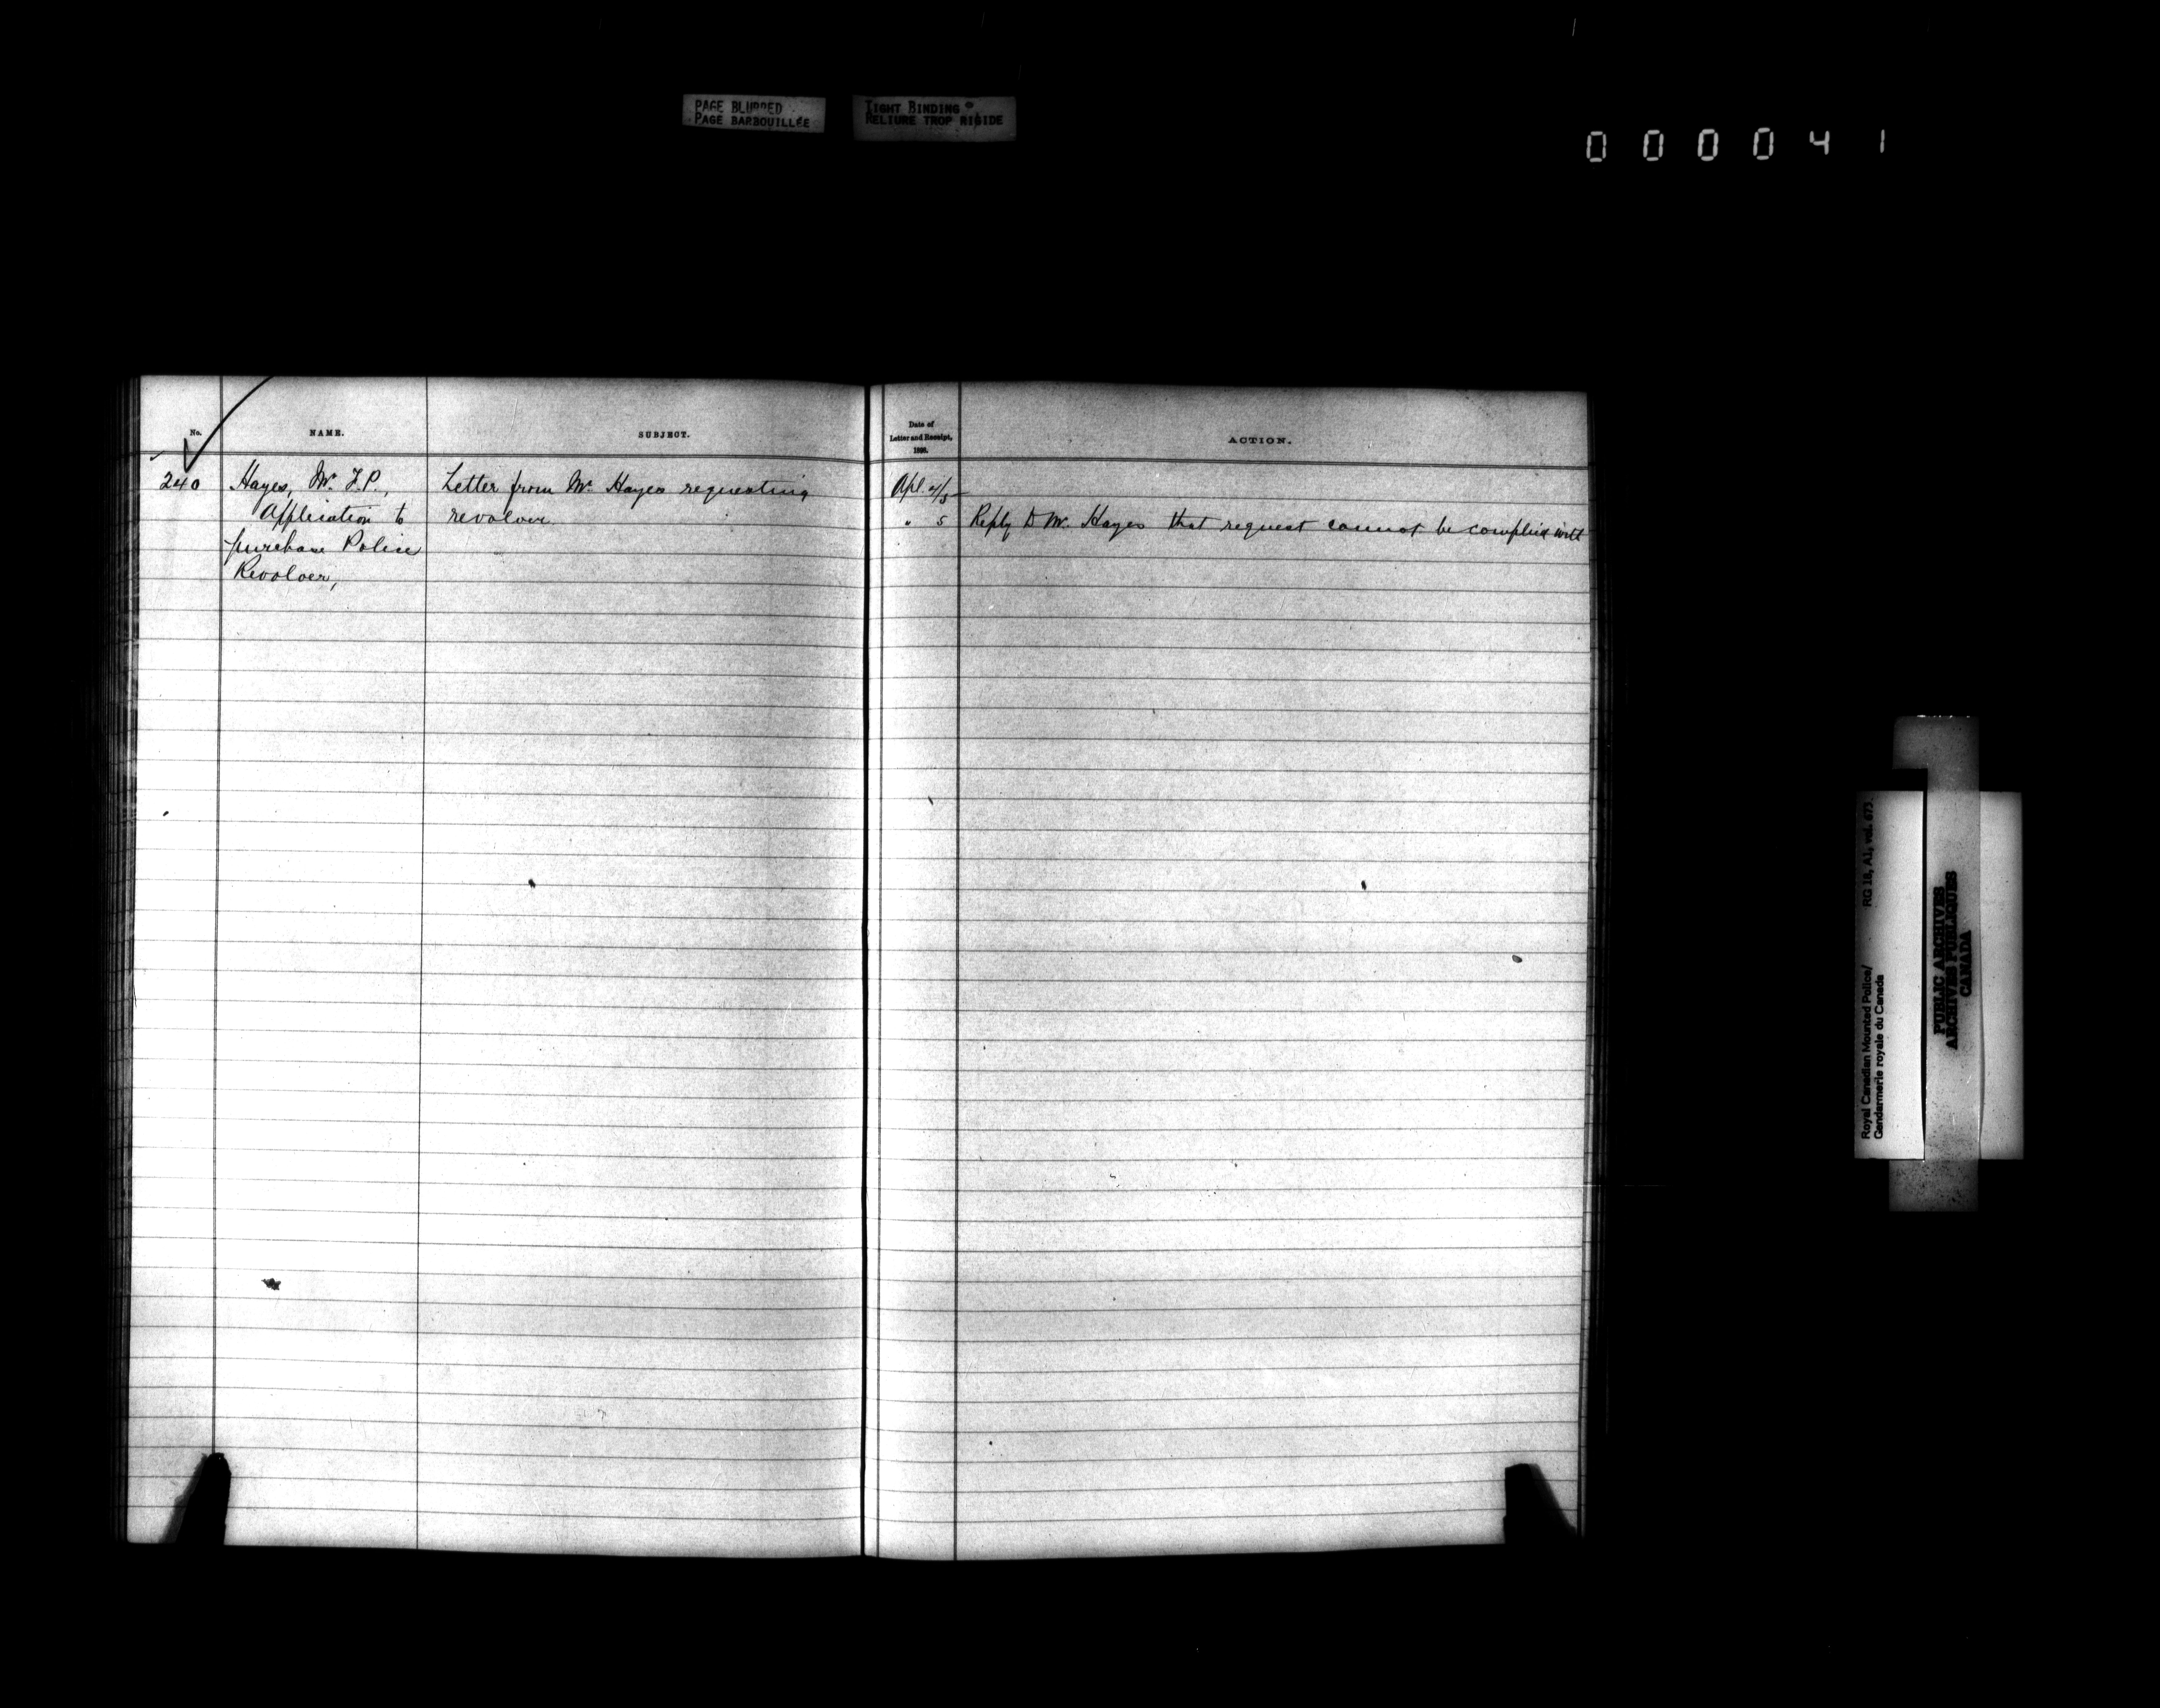 PAGE BLURRED
PAGE BARBOUILLÉE
TIGHT BINDING
RELIURE TROP RIGIDE
000041
No.
NAME.
SUBJECT.
Date of
Letter and Receipt,
ACTION.
240
Hayes, Mr. F.P.,
Application to
purchase Police
Revolver,
Letter from Mr. Hayes requesting
revolver.
Apl. 4/5
" 5
Reply to Mr. Hayes that request cannot be complied with
Royal Canadian Mounted Police/ RG 18, A1, vol. 673.
Gendarmerie royale du Canada
PUBLIC ARCHIVES
ARCHIVES PUBLIQUES
CANADA